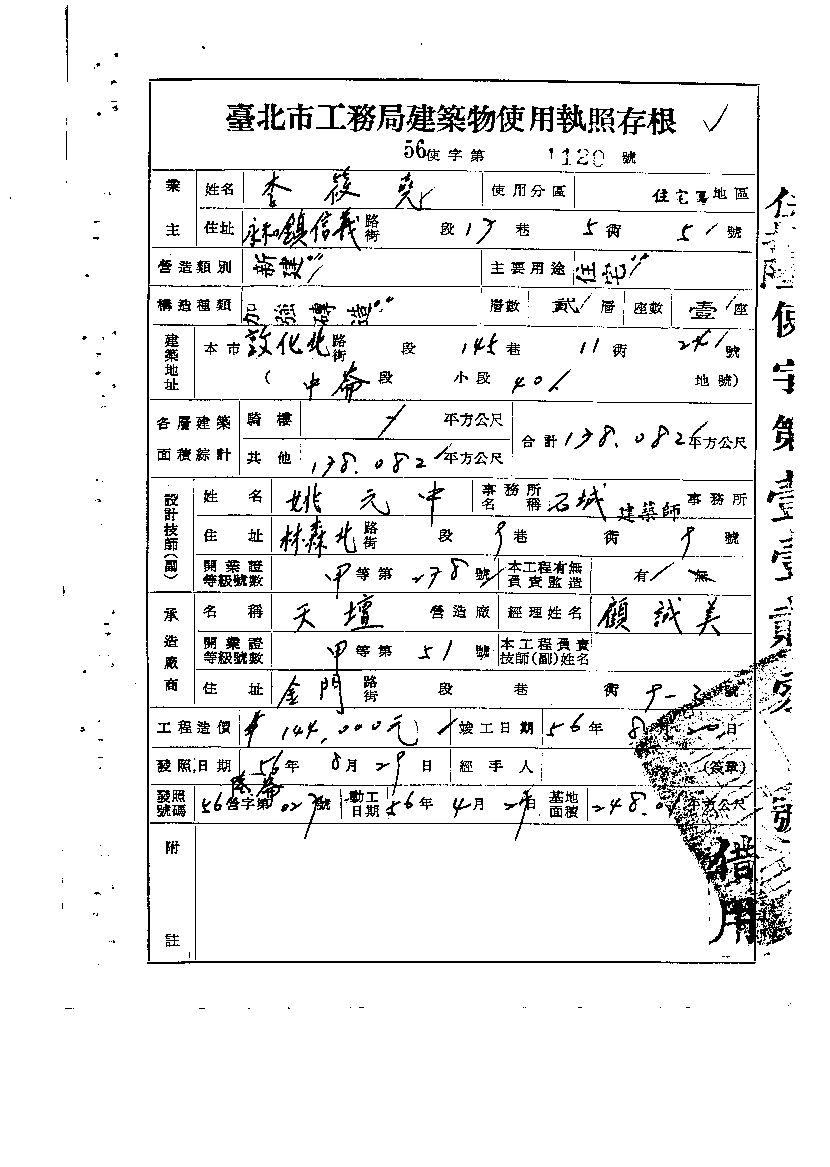 臺北市工務局建築物使用執照存根
56使字第 1120 號
業主 姓名 李筱堯 使用分區 住宅區地區
住址 永和鎮信義路街 段 17 巷 5 衖 51 號
營造類別 新建 主要用途 住宅
構造種類 加強磚造 層數 貳層 座數 壹座
建築地址 本市敦化北路街 段 145 巷 11 衖 號
(中崙段 小段 40 地號)
各層建築面積綜計 騎樓 平方公尺 合計 138.082 平方公尺
其他 138.082 平方公尺
設計技師(副) 姓名 姚元中 事務所名稱 石城建築師事務所
住址 林森北路街 段 9 巷 衖 9 號
開業證等級號數 甲等第 238 號 本工程有無負責監造 有 無
承造廠商 名稱 天壇 營造廠 經理姓名 顧誠美
開業證等級號數 甲等第 51 號 本工程負責技師(副)姓名
住址 金門路街 段 巷 衖 9-3 號
工程造價 144,000元 竣工日期 56年 8月 20日
發照日期 56年 8月 29日 經手人 (簽章)
發照號碼 56營字第 027 號 動工日期 56年 4月 29日 基地面積 248.0 平方公尺
附註
使字第壹壹貳零號
借用